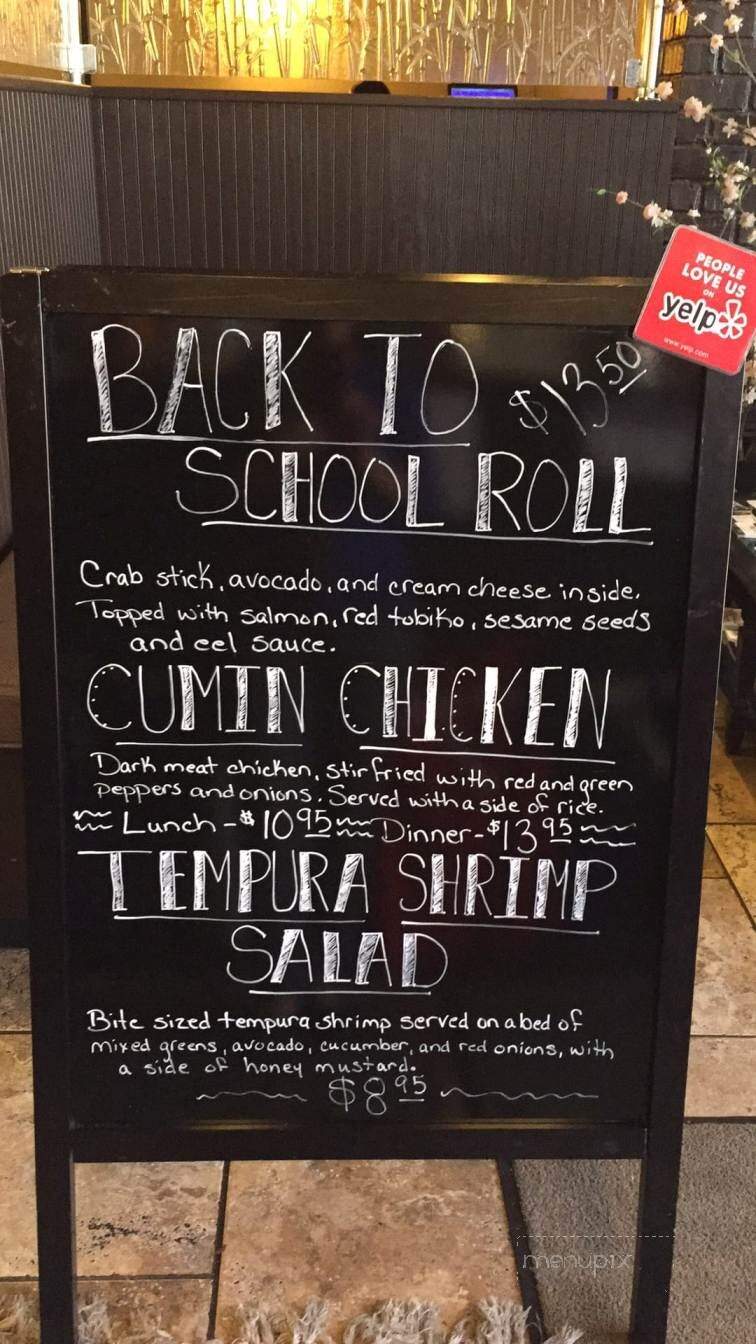 PEOPLE
LOVE US
ON
yelp
www.yelp.com
BACK TO $13.50
SCHOOL ROLL
Crab stick, avocado, and cream cheese inside.
Topped with salmon, red tobiko, sesame seeds
and eel sauce.
CUMIN CHICKEN
Dark meat chicken, stir fried with red and green
peppers and onions. Served with a side of rice.
Lunch - $10.95 Dinner - $13.95
TEMPURA SHRIMP
SALAD
Bite sized tempura shrimp served on a bed of
mixed greens, avocado, cucumber, and red onions, with
a side of honey mustard.
$8.95
menupix